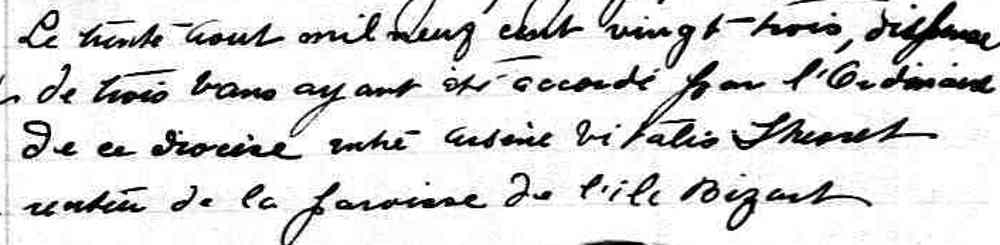 Le trente aout mil neuf cent vingt-trois, dispense
de trois bans ayant été accordé par l'Ordinaire
de ce diocèse entre Arsène Vitalis
rentier de la paroisse de l'île Bizart